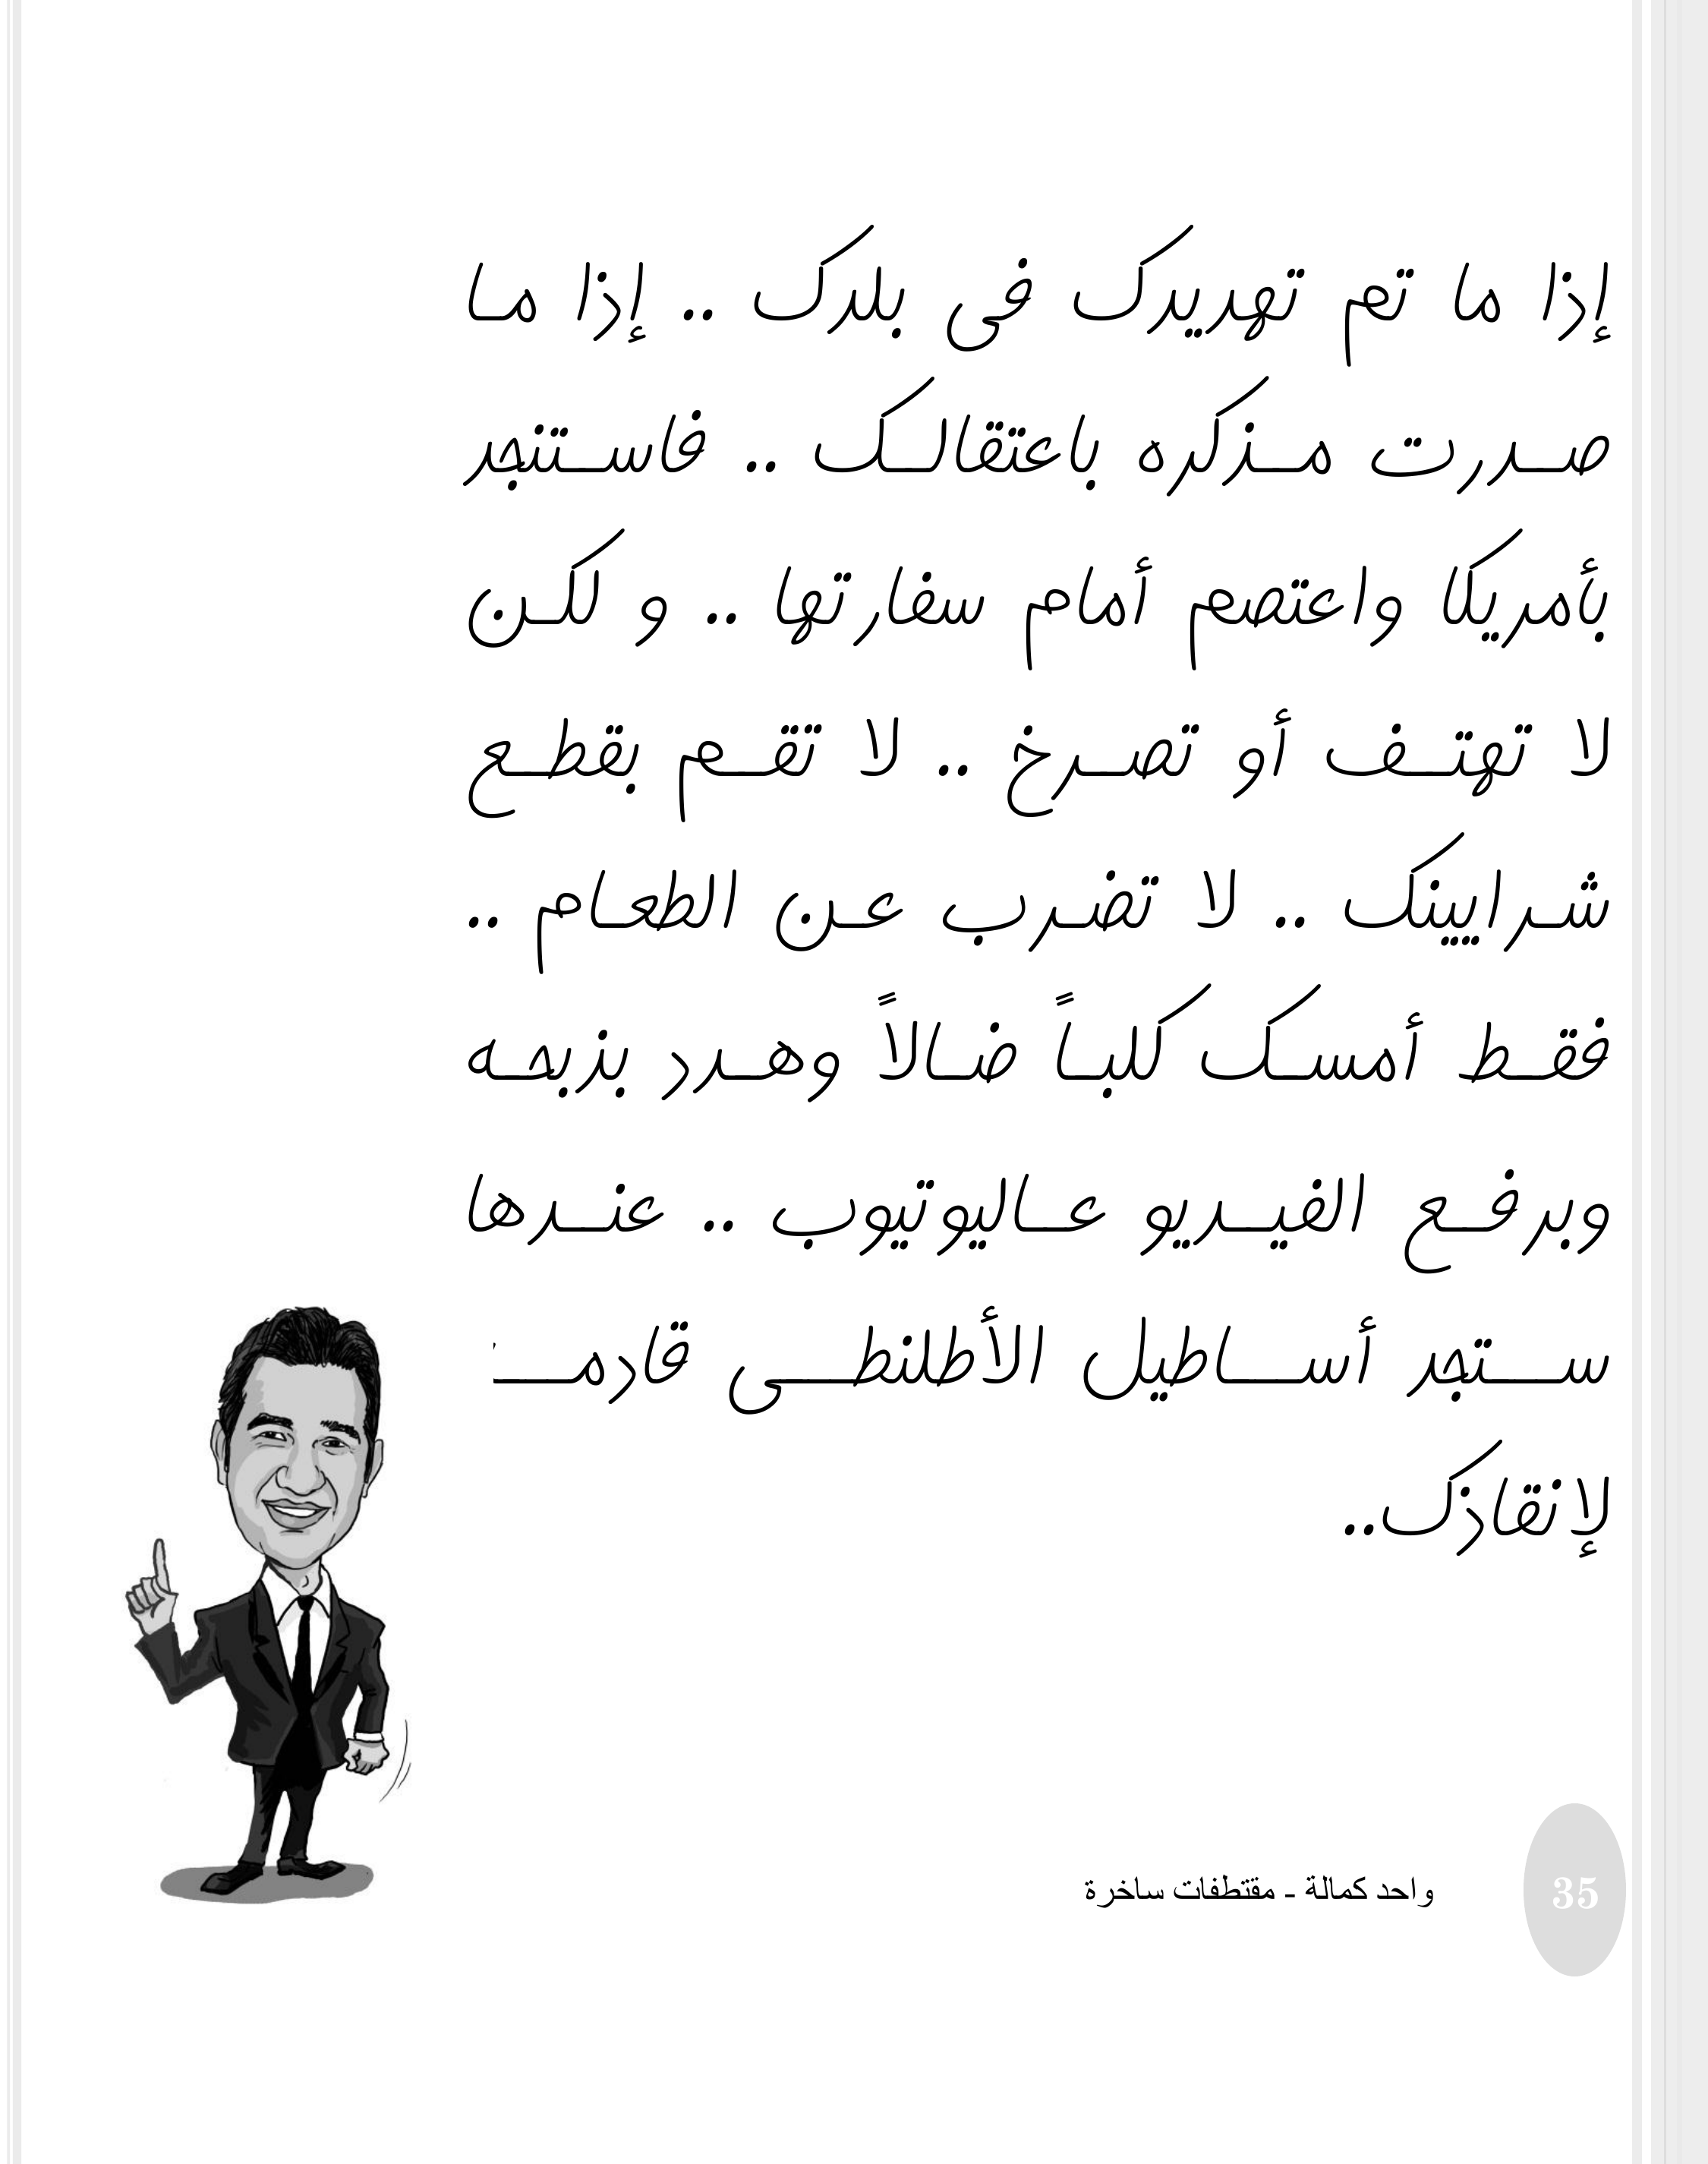 إذا ما تم تهديدك فى بلدك .. إذا ما
صدرت مذكره باعتقالك .. فاستنجد
بأمريكا واعتصم أمام سفارتها .. و لكن
لا تهتف أو تصرخ .. لا تقم بقطع
شرايينك .. لا تضرب عن الطعام ..
فقط أمسك كلباً ضالاً وهدد بذبحه
وبرفع الفيديو عاليوتيوب .. عندها
ستجد أساطيل الأطلنطى
لإنقاذك..
واحد كمالة - مقتطفات ساخرة
35